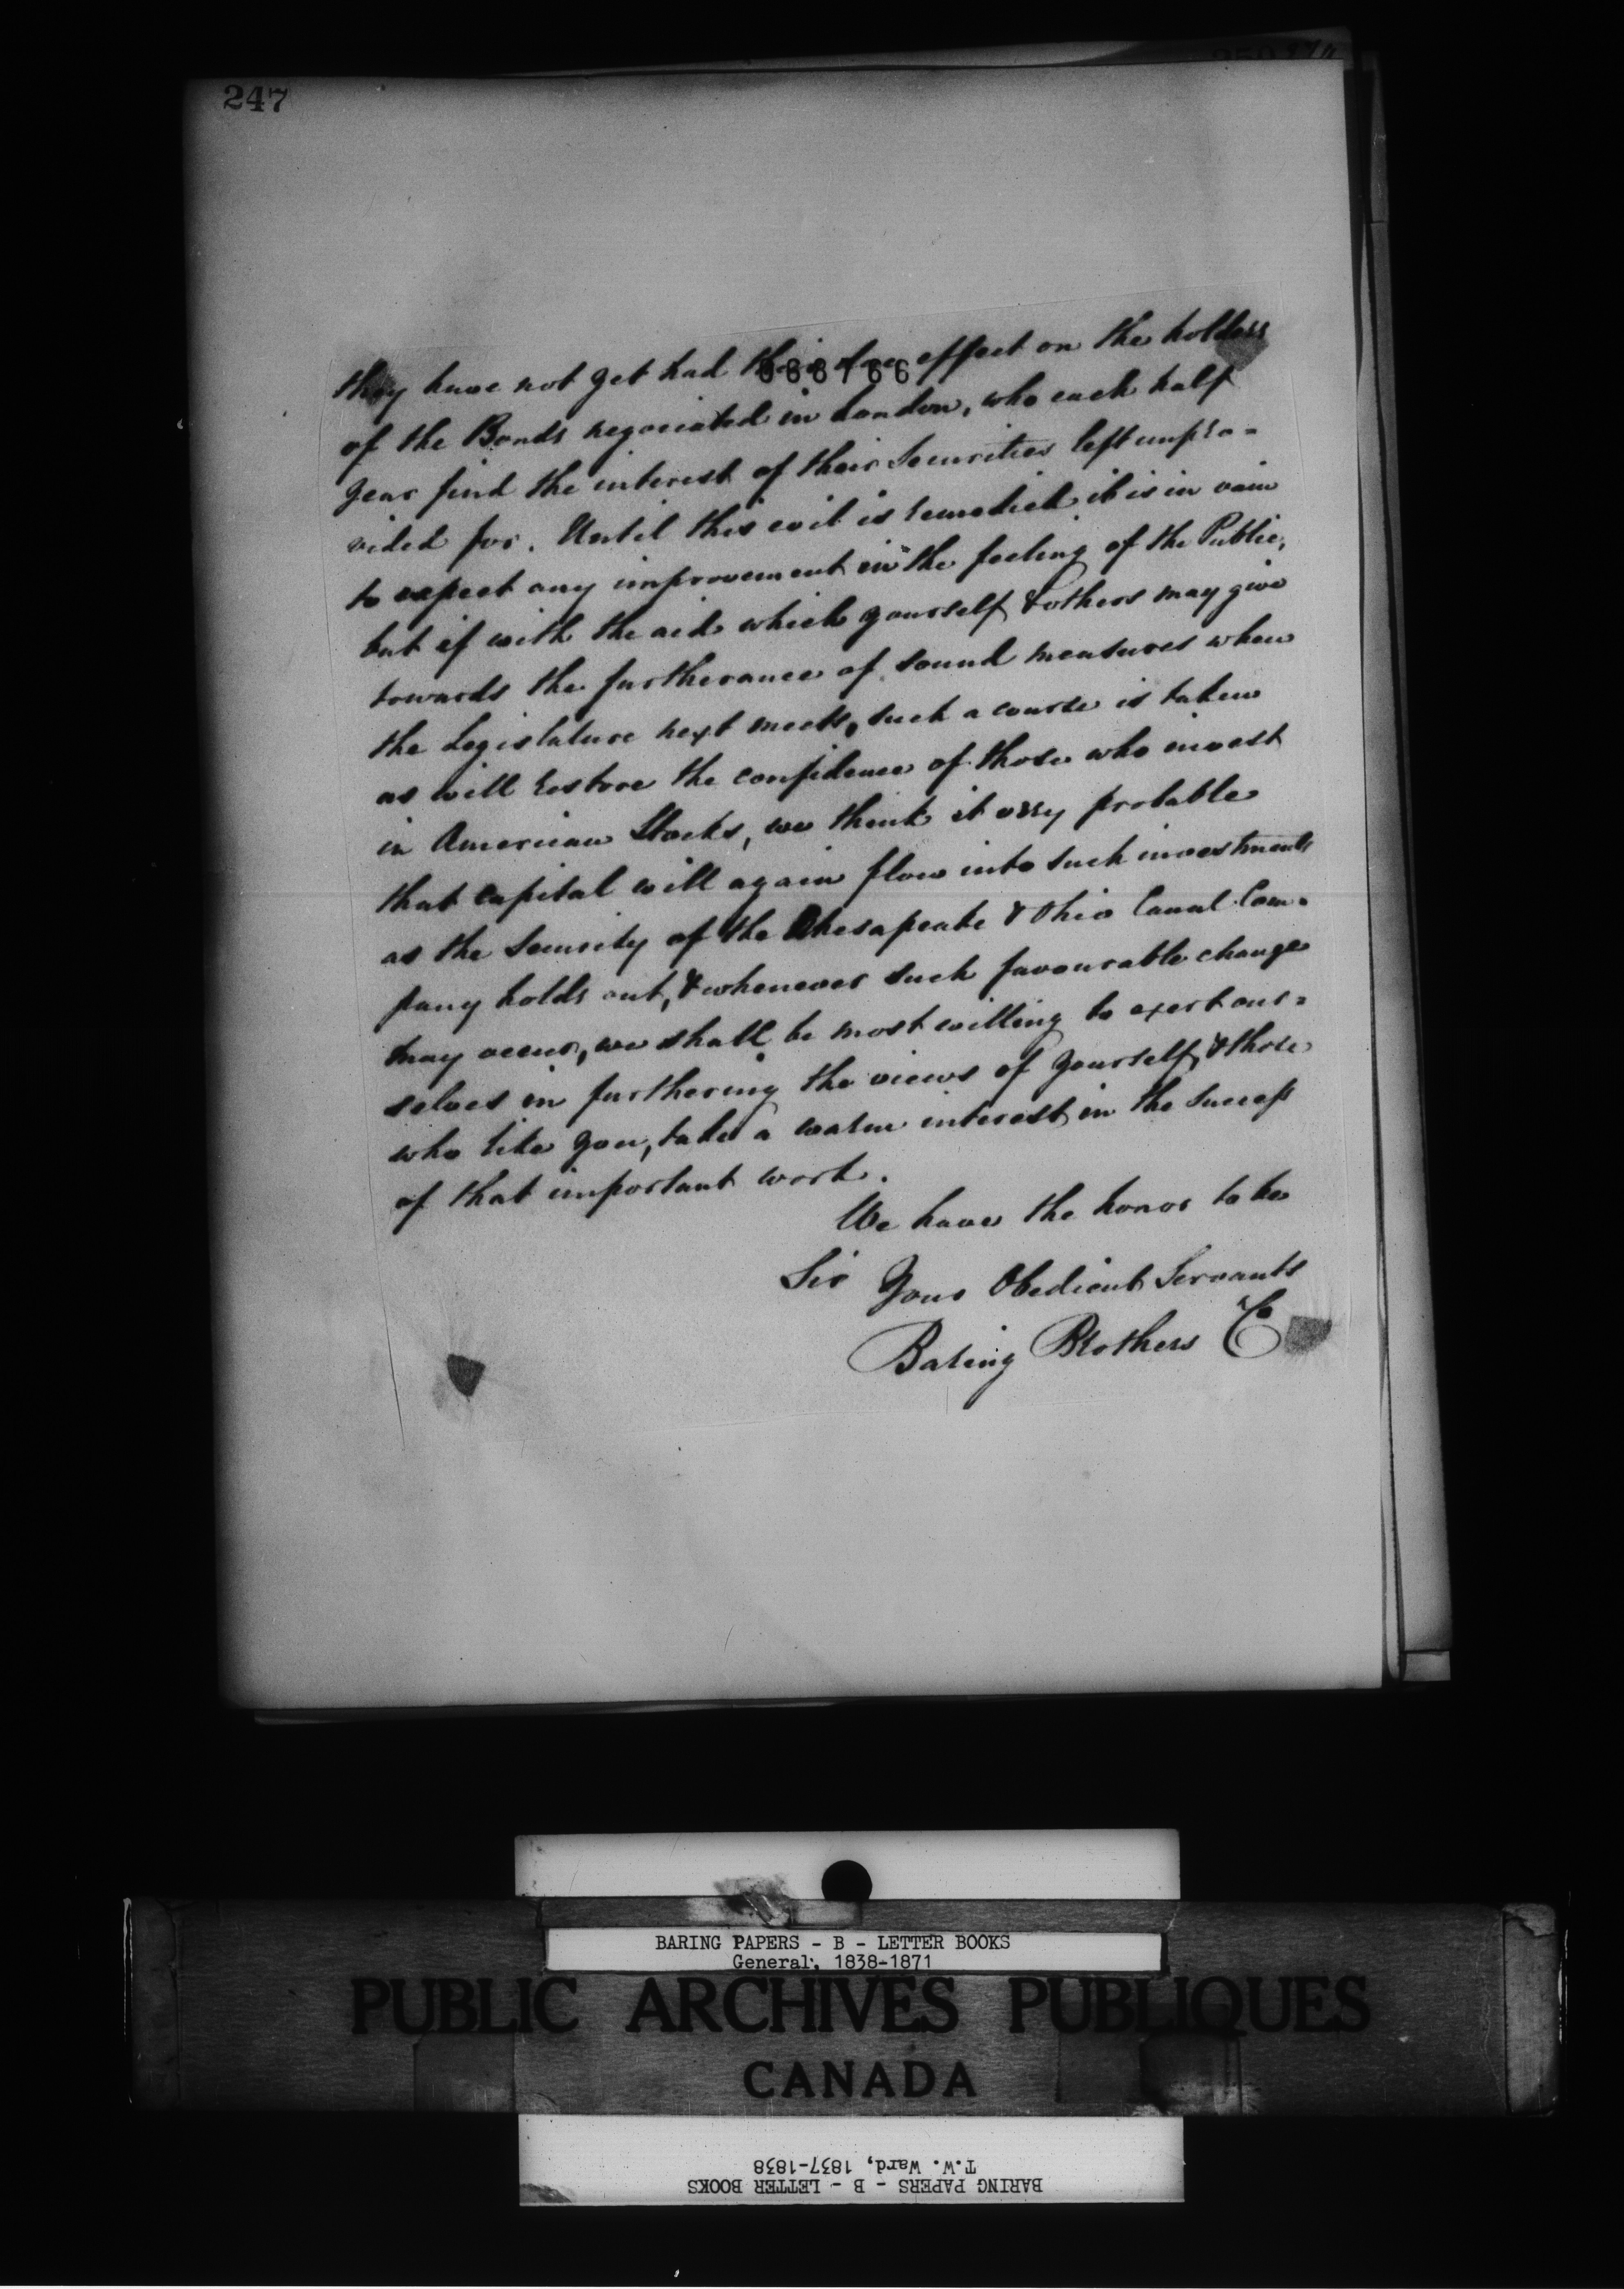 247
they have not yet had their due effect on the holders
088766
of the Bonds negociated in London, who each half
year find the interest of their Securities left unpro=
vided for. Until this evil is remedied it is in vain
to expect any improvement in the feeling of the Public,
but if with the aid which yourself & others may give
towards the furtherance of sound measures when
the Legislature next meets, such a course is taken
as will restore the confidence of those who invest
in American Stocks, we think it very probable
that capital will again flow into such investments
as the Security of the Chesapeake & Ohio Canal Com=
pany holds out, & whenever such favourable change
may occur, we shall be most willing to exert our=
selves in furthering the views of yourself, & those
who like you, take a warm interest in the success
of that important work.
We have the honor to be
Sir Your Obedient Servants
Baring Brothers & Co
BARING PAPERS - B - LETTER BOOKS
General, 1838-1871
PUBLIC ARCHIVES PUBLIQUES
CANADA
BARING PAPERS - B - LETTER BOOKS
T.W. Ward, 1837-1838